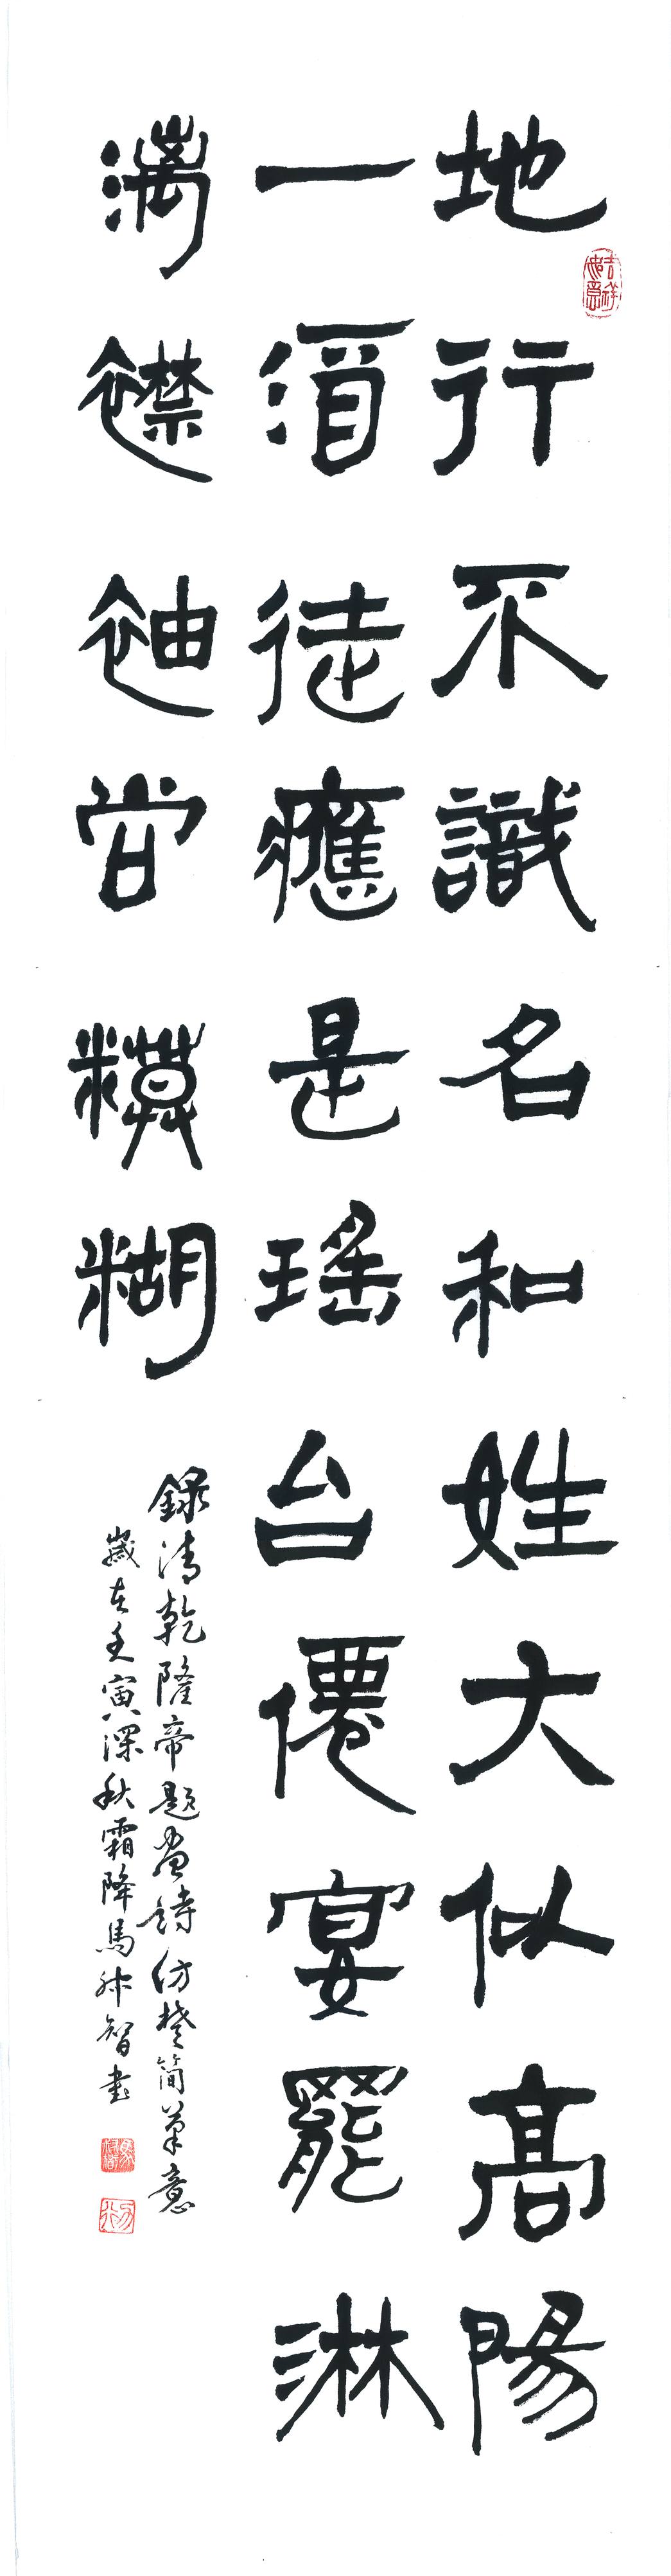 地行不識名和姓大似高陽
一酒徒應是瑤台僊宴罷淋
漓襟袖尚糢糊
錄清乾隆帝題畫詩仿楚簡筆意
歲在壬寅深秋霜降馬 智書
吉祥如意